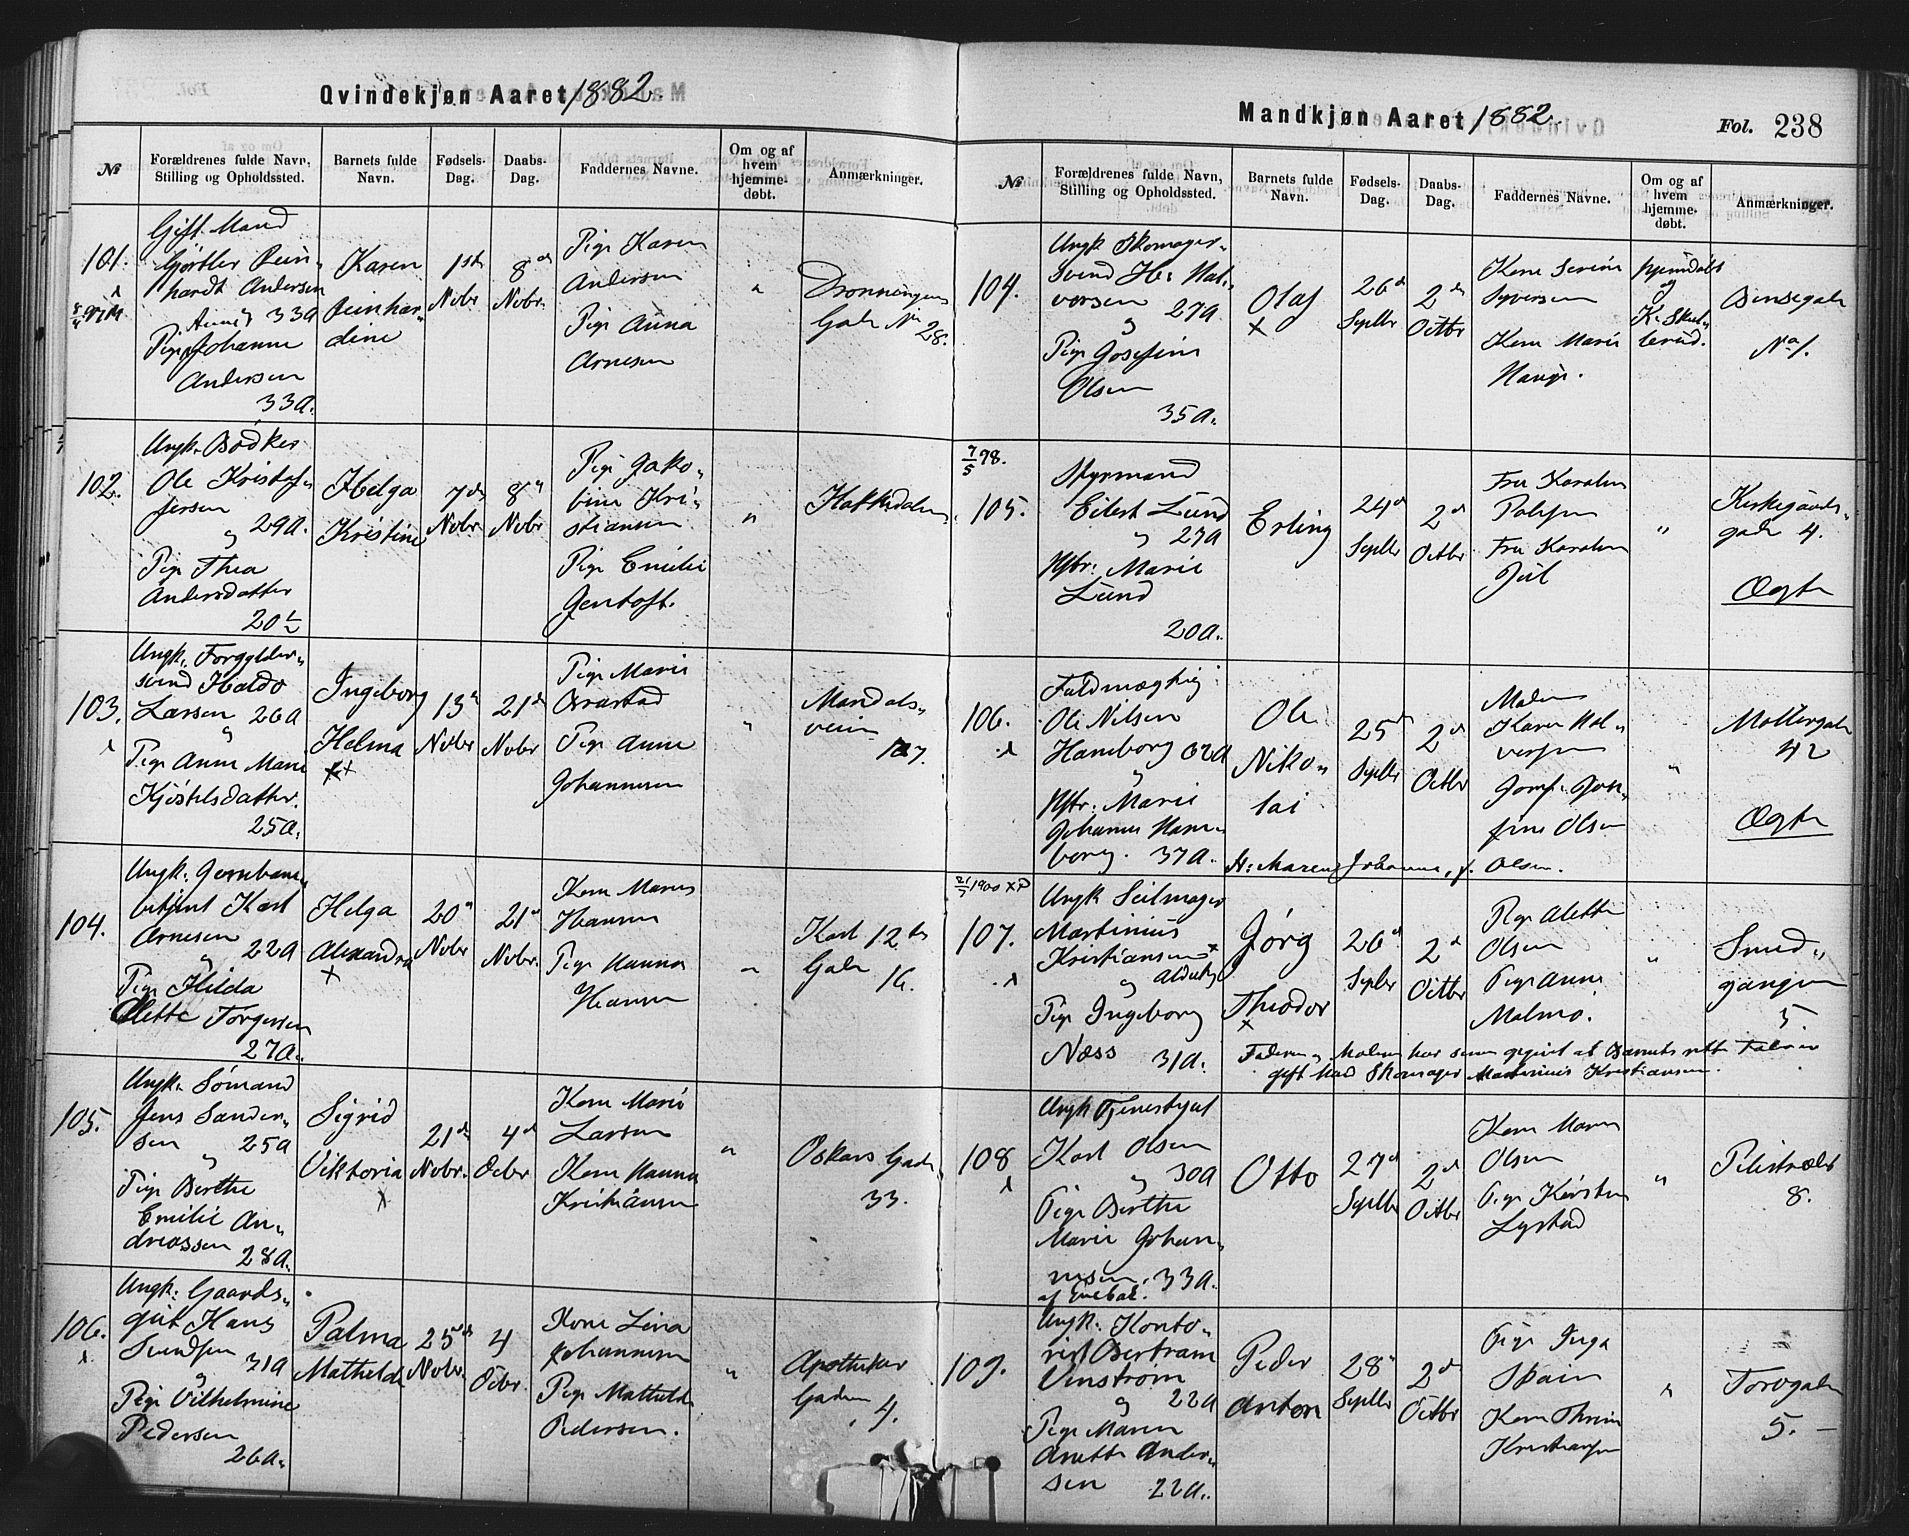 Qvindekjøn Aaret 1882
№
Forældrenes fulde Navn,
Stilling og Opholdssted.
Barnets fulde
Navn.
Fødsels-
Dag.
Daabs-
Dag.
Faddernes Navne.
Om og af
hvem
hjemme-
døbt.
Anmærkninger.
101.
Gift Mand
Gjørtler Rein„
hardt Andersen
33 a
Pige Johanne
Andersen
33 a.
Karen
Reinhar„
dine
1ste
Novbr
8de
Novbr.
Pige Karen
Andersen
Pige Anna
Arnesen
"
Dronningens
Gade No
28.
102.
Ungk. Bødker
Ole Kristof„
fersen
29 a.
og
Pige Thea
Andersdatter
20½
Helga
Kristine
7de
Novbr
8de
Novbr
Pige Jako„
bine Kri„
stiansen
Pige Emilie
Gentoft.
"
Hakkedalen
103.
Ungk. Forgylder„
svend Haldo
Larsen 26 a
og
Pige Anne Marie
Kjøstelsdatter.
25 a.
Ingeborg
Helma
13de
Novbr
21de
Novbr
Pige Marie
Pige Anne
Johannesen
"
Mandals„
veien
107.
104.
Ungk. Jernbane„
betjent Karl
Arnesen
og 22 a
Pige Hilda
Alette Torgersen
27 a.
Helga
Alexandra
x
20de
Novbr
21de
Novbr.
Kone Maren
Hansen
Pige Hanna
Hansen
"
Karl 12tes
Gade 16.
105.
Ungk. Sømand
Jens Sander„
sen 25 a
og
Pige Berthe
Emilie An„
dreassen
28 a.
Sigrid
Viktoria
x
21de
Novbr.
4de
Decbr
Kone Marie
Larsen
Kone Hanna
Kristiansen
"
Oskars Gade
33.
106.
Ungk. Gaards„
gut Hans
Svendsen
og 31 a
Pige Vilhelmine
Pedersen
26 a.
Palma
Mathilde
25de
Novbr.
4
Decbr.
Kone Lina
Johannesen
Pige Mathilde
Pedersen.
"
Apotheker
Gaden
4.
Mandkjøn Aaret 1882.
Fol. 238
№
Forældrenes fulde Navn,
Stilling og Opholdssted.
Barnets fulde
Navn.
Fødsels-
Dag.
Daabs-
Dag.
Faddernes Navne.
Om og af
hvem
hjemme-
døbt.
Anmærkninger.
104.
Ungk Skomager„
svend Hs Hal„
vorsen 27 a
og
Pige Josefine
Olsen
35 a.
Olaf
x
26de
Septbr
2de
Octbr
Kone Serine
Syversen
Kone Marie
Hauge.
hjemdøbt
og
No 1.
7/5 98.
105.
Styrmand
Eilert Lund
og 27 a
Hstr: Marie
Lund
20 a.
Erling
24de
Septbr
2de
Octbr
Fru Karoline
Fru Karoline
Juel
"
Kirkegaards„
gade 4.
Ægte
106.
Fuldmægtig
Ole Nilsen
Haneborg 62 a
og
Hstr: Marie
Johanne Hane„
borg. 37 a.
Ole
Niko„
lai
25de
Septbr
2de
Octbr
Moderen
Karen Hal„
vorsen
Jomf. Jose„
fine Olsen
"
Møllergade
42
Ægte
H: Maren Johanne, f. Olsen.
21/7 1900 x P
107.
Ungk Seilmager
Martinius
Kristiansen x
og
Pige Ingeborg
Næss 31 a.
Jørg
Theodor
x
26de
Septbr
2de
Octbr
Pige Alette
Olsen
Pige Anne
Malmo.
"
Smed„
gangen
5.
Faderen
gift Mand Skomager Martinius Kristiansen.
108
Ungk Tjenestgut
Karl Olsen
og 30 a
Pige Berthe
Marie Johan„
nesen. 33 a.
Otto
27de
Septbr
2de
Octbr
Kone Maren
Olsen
Pige Kirsten
Lystad
"
Pilestrædet
8.
109.
Ungk. Konto„
rist Bertram
Vinstrøm
og 22 a
Pige Maren
Anette Ander„
sen 22 a.
Peder
Anton
28de
Septbr
2de
Octbr
Pige Inga
Kone Thrine
Kristiansen
"
Torvgaden
5. –